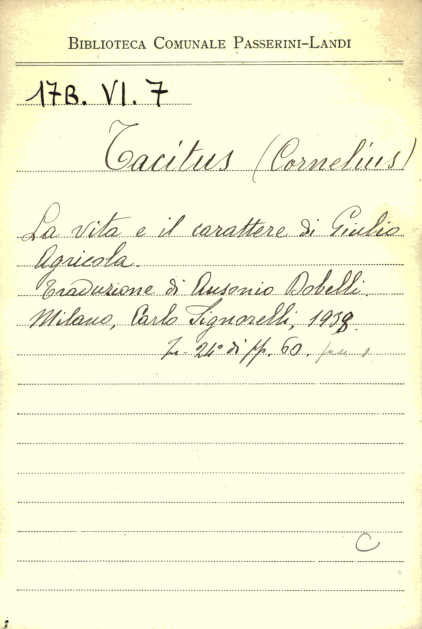 BIBLIOTECA COMUNALE PASSERINI-LANDI
17B. VI. 7
Tacitus (Cornelius)
La vita e il carattere di Giulio
Agricola.
Traduzione di Ausonio Dobelli.
Milano, Carlo Signorelli, 1938.
In-24° di pp. 60.
C